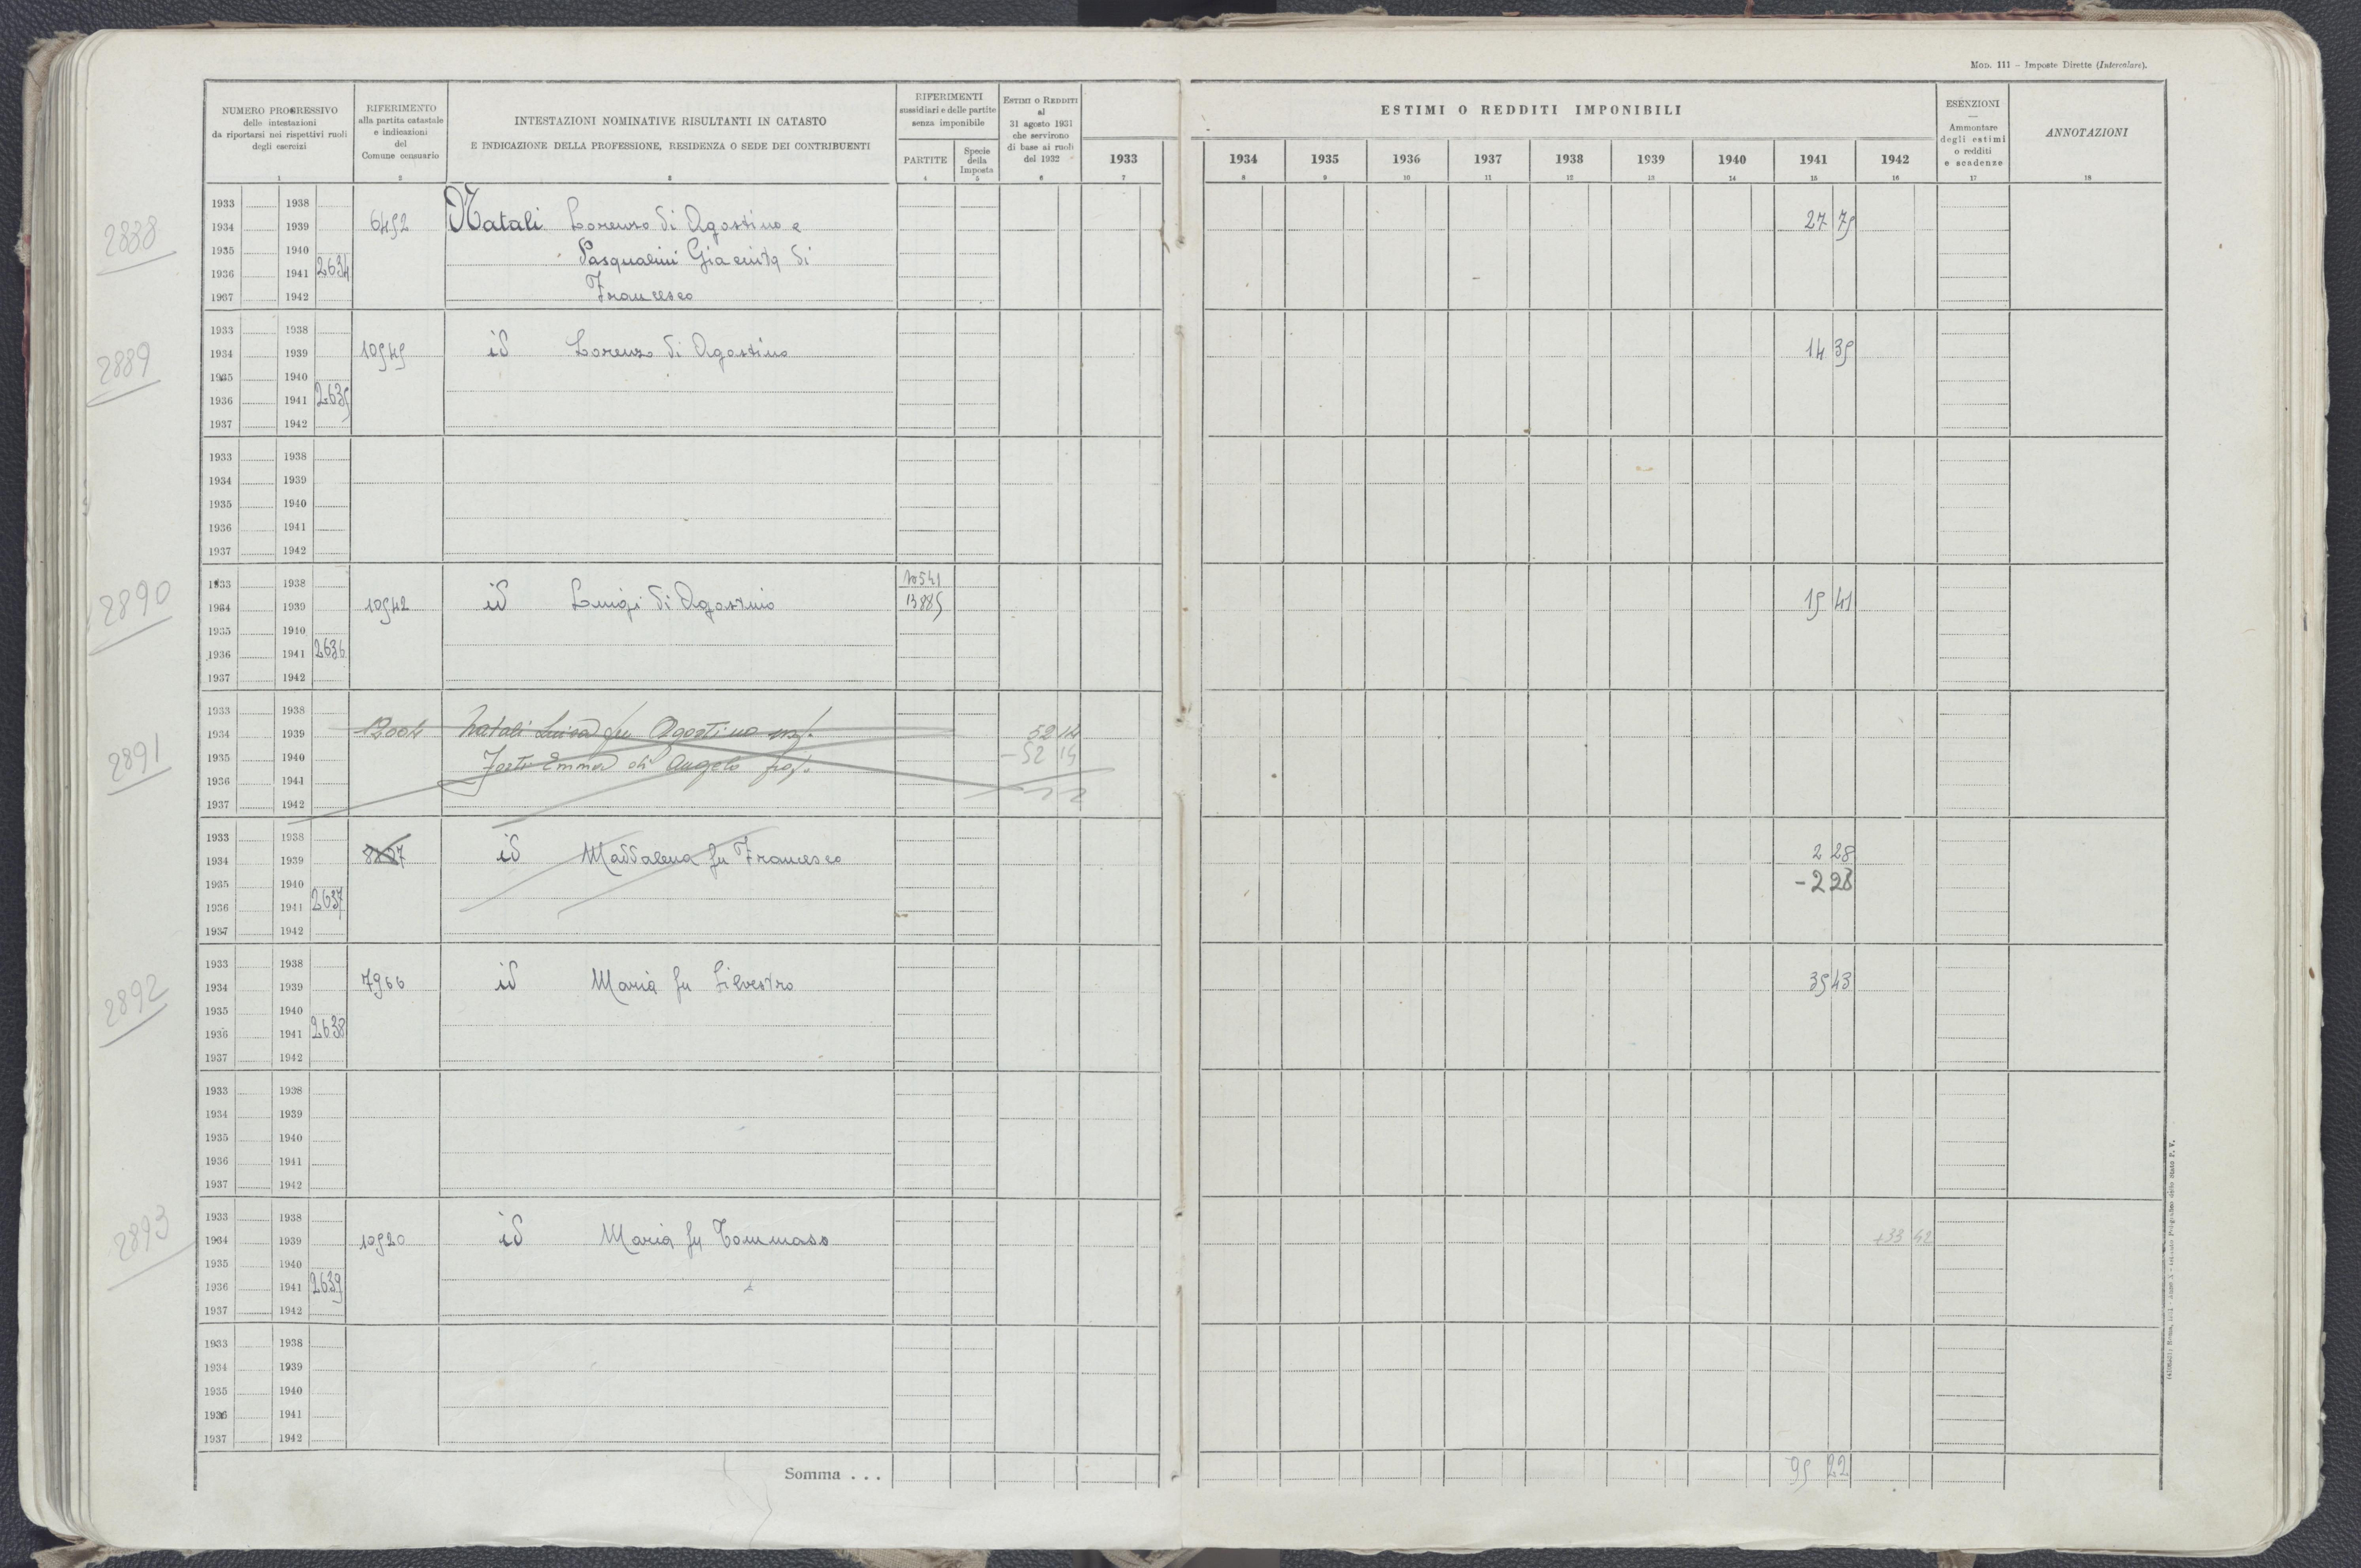 MOD. 111 – Imposte Dirette (Intercalare).
NUMERO PROGRESSIVO
delle intestazioni
da riportarsi nei rispettivi ruoli
degli esercizi
RIFERIMENTO
alla partita catastale
e indicazioni
del
Comune censuario
INTESTAZIONI NOMINATIVE RISULTANTI IN CATASTO
E INDICAZIONE DELLA PROFESSIONE, RESIDENZA O SEDE DEI CONTRIBUENTI
RIFERIMENTI
sussidiari e delle partite
senza imponibile
PARTITE
Specie
della
Imposta
ESTIMI O REDDITI
al
31 agosto 1931
che servirono
di base ai ruoli
del 1932
1933
ESTIMI O REDDITI IMPONIBILI
1934 1935 1936 1937 1938 1939 1940 1941 1942
ESENZIONI
—
Ammontare
degli estimi
o redditi
e scadenze
ANNOTAZIONI
1 2 3 4 5 6 7 8 9 10 11 12 13 14 15 16 17 18
2838
1933 1938
1934 1939 6452 Natali Lorenzo di Agostino e 27 75
1935 1940 Pasqualini Giacinta di
1936 1941 2634
1937 1942 Francesco
2889
1933 1938
1934 1939 10545 id Lorenzo di Agostino 14 35
1935 1940
1936 1941 2635
1937 1942
1933 1938
1934 1939
1935 1940
1936 1941
1937 1942
2890
1933 1938 10541
1934 1939 10542 id Luigi di Agostino 13885 15 41
1935 1940
1936 1941 2636
1937 1942
2891
1933 1938
1934 1939 12004 Natali Luisa fu Agostino 52 14
1935 1940 Forti Emma di Angelo – 52 14
1936 1941
1937 1942
1933 1938
1934 1939 id Maddalena fu Francesco 2 28
1935 1940 – 2 28
1936 1941 2637
1937 1942
2892
1933 1938
1934 1939 7966 id Maria fu Silvestro 35 43
1935 1940
1936 1941 2638
1937 1942
1933 1938
1934 1939
1935 1940
1936 1941
1937 1942
2893
1933 1938
1934 1939 10520 id Maria fu Tommaso +33 42
1935 1940
1936 1941 2639
1937 1942
1933 1938
1934 1939
1935 1940
1936 1941
1937 1942
Somma . . . 95 22